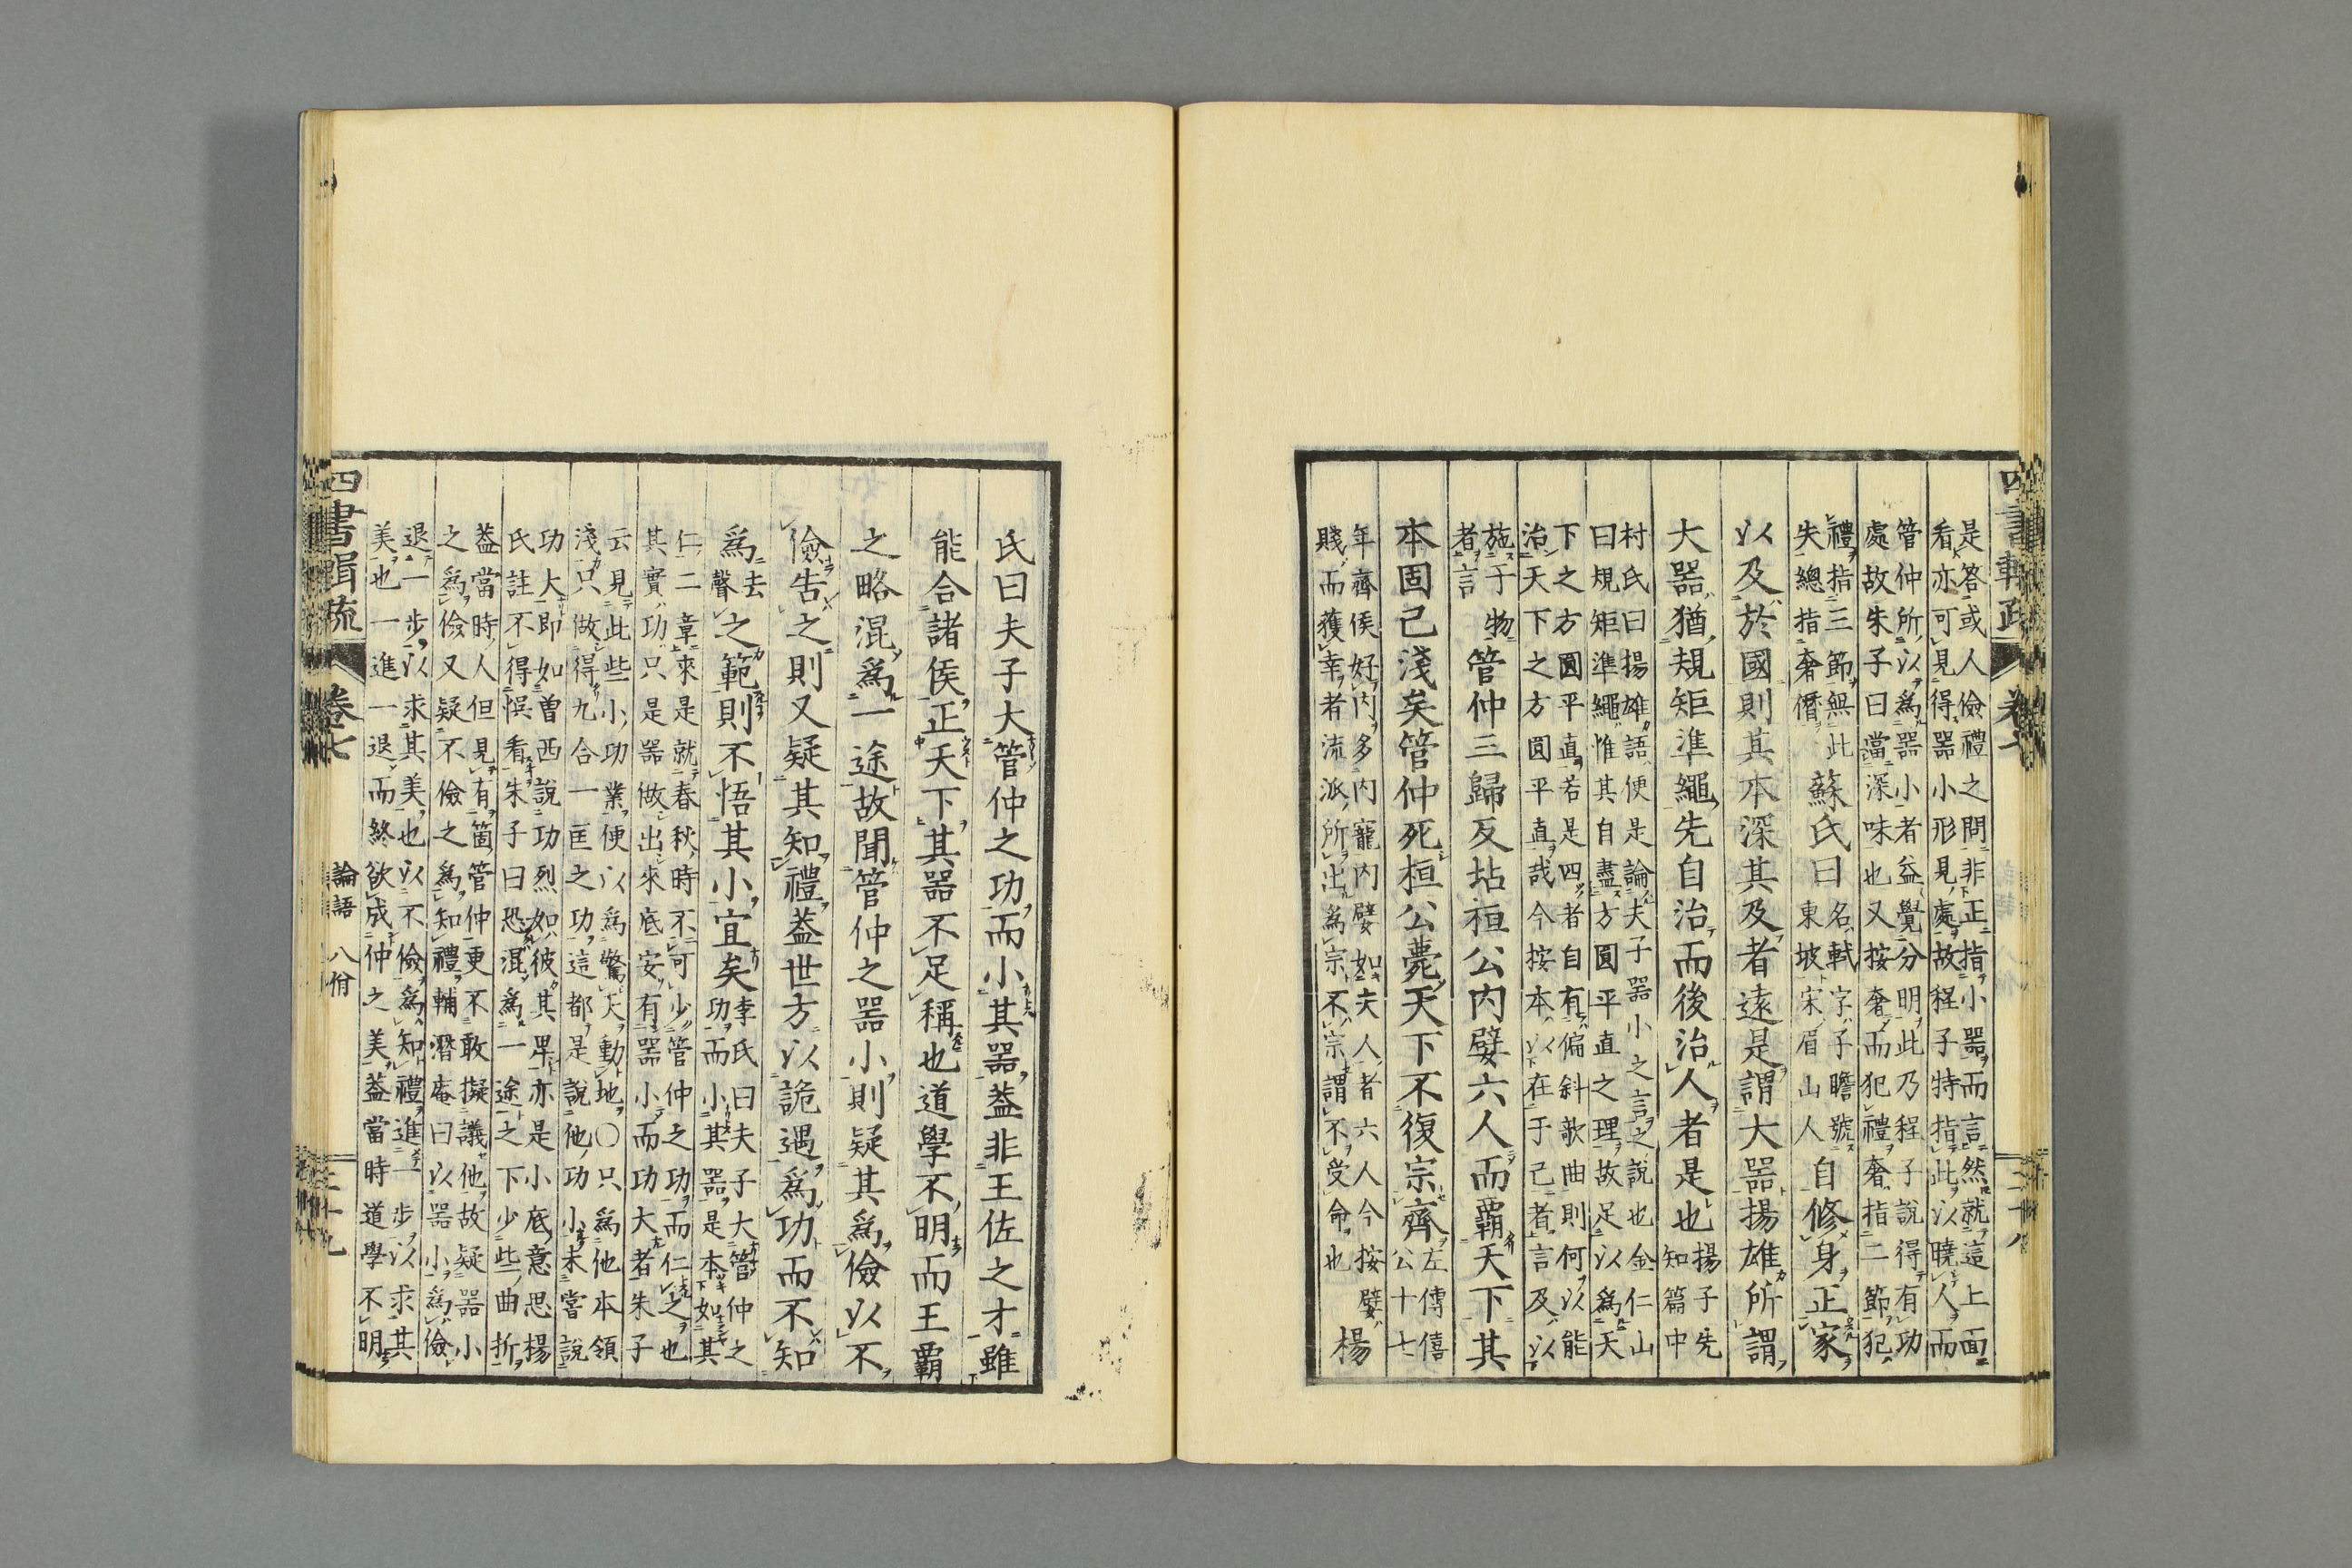 是答或人儉禮之問非正指小器而言然就這上面
看亦可見得器小形見處故程子特指此以曉人而
管仲所以爲器小者益覺分明此乃程子說得有功
處故朱子曰當深味也又按奢而犯禮奢指二節犯
禮指三節無此
失總指奢僭
蘇氏曰
名軾字子瞻號
東坡宋眉山人
自修身正家
以及於國則其本深其及者遠是謂大器揚雄所謂
大器猶規矩準繩先自治而後治人者是也
揚子先
知篇中
村氏曰揚雄語便是論夫子器小之言之說也金仁山
曰規矩準繩惟其自盡方圓平直之理故足以爲天
下之方圓平直若是四者自有偏斜欹曲則何以能
治天下之方圓平直哉今按本以在于己者言及以
施于物
者言
管仲三歸反坫桓公内嬖六人而霸天下其
本固已淺矣管仲死桓公薨天下不復宗齊
左傳僖
公十七
年齊侯好内多内寵内嬖如夫人者六人今按嬖
賤而獲幸者流派所出爲宗不宗謂不受命也
楊
氏曰夫子大管仲之功而小其器蓋非王佐之才雖
能合諸侯正天下其器不足稱也道學不明而王霸
之略混爲一途故聞管仲之器小則疑其爲儉以不
儉告之則又疑其知禮蓋世方以詭遇爲功而不知
爲
去
聲
之範則不悟其小宜矣
李氏曰夫子大管仲之
功而小其器是本如其
仁二章來是就春秋時不可少管仲之功而仁之也
其實功只是器做出來底安有器小而功大者朱子
云見此些小功業便以爲驚天動地〇只爲他本領
淺只做得九合一匡之功這都是說他功小未嘗說
功大即如曽西說功烈如彼其卑亦是小底意思楊
氏註不得悞看朱子曰恐混爲一途之下少些曲折
蓋當時人但見有箇管仲更不敢擬議他故疑器小
之爲儉又疑不儉之爲知禮輔潛庵曰以器小爲儉
退一步以求其美也以不儉爲知禮進一步以求其
美也一進一退而終欲成仲之美蓋當時道學不明
四書輯疏
卷七
論語 八佾
三十九